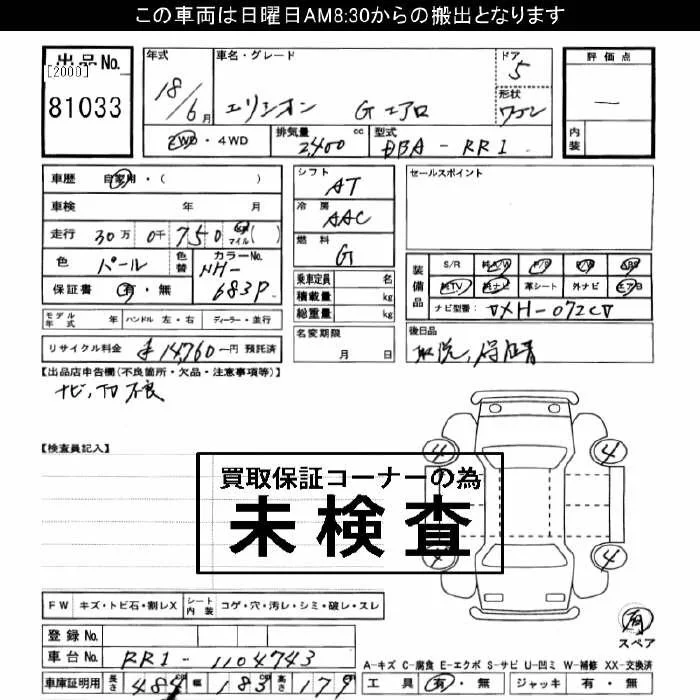 この車両は日曜日AM8:30からの搬出となります
出品No.
[2000]
81033
年式
18/6月
車名・グレード
エリシオン Gエアロ
ドア
5
形状
ワゴン
評価点
—
内装
2WD・4WD
排気量
2400cc
型式
DBA-RR1
車歴 自家用・( )
車検 年 月
走行 30万 0千 750 km マイル ( )
色 パール
色替
カラーNo.
NH-683P
保証書 有・無
シフト
AT
冷房
AAC
燃料
G
乗車定員 名
積載量 kg
総重量 kg
セールスポイント
装備品
S/R 純AW P/S P/W ABS
純TV 純ナビ 革シート 外ナビ エアB
ナビ型番: VXH-072CV
モデル年式 年 ハンドル 左・右 ディーラー・並行
名変期限
月 日
後日品
取説、保証書
リサイクル料金 ¥14,760-円 預託済
【出品店申告欄(不良箇所・欠品・注意事項等)】
ナビ、TV不良
【検査員記入】
買取保証コーナーの為
未検査
4 4
4 4
有
スペア
FW キズ・トビ石・割レX シート内装 コゲ・穴・汚レ・シミ・破レ・スレ
登録No.
車台No. RR1-1104743
A-キズ C-腐食 E-エクボ S-サビ U-凹ミ W-補修 XX-交換済
車庫証明用 長さ 484 幅 183 高さ 179
工具 有・無 ジャッキ 有・無